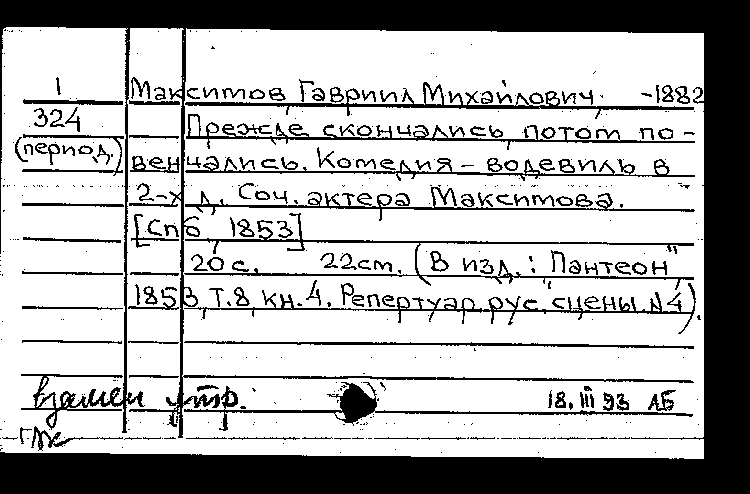 1 Максимов, Гавриил Михайлович, -1882
324 Прежде скончались, потом по-
(период.) венчались. Комедия-водевиль в
2-х д. Соч. актера Максимова.
[Спб, 1853]
20 с. 22 см. (В изд.: "Пантеон",
1853, Т.8, кн.4. Репертуар рус. сцены №4).
взамен утр. 18.III 93 АБ